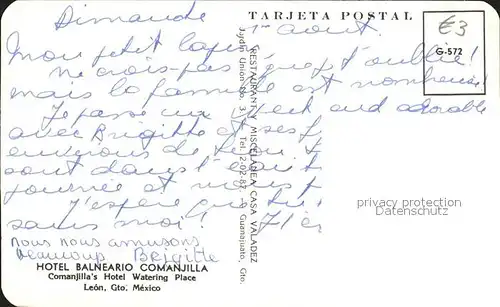 Dimanche 1er août.
TARJETA POSTAL
€3
G-572
Mon petit lapin
ne crois-pas que je t'oublie!
mais la famille est nombreuse!
Je passe un week end adorable
avec Brigitte et ses
environs de
sont dans l'eau
journée et nous
J'espère que tu
sans moi!
nous nous amusons
beaucoup Brigitte
RESTAURANT Y MISCELANEA CASA VALADEZ
Jardín Unión No. 3 Tel. 2-02-87 Guanajuato, Gto.
privacy protection
Datenschutz
HOTEL BALNEARIO COMANJILLA
Comanjilla's Hotel Watering Place
León, Gto. México